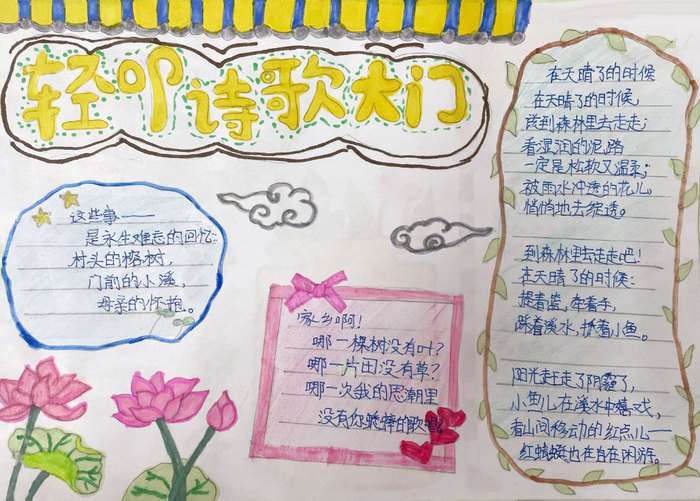 轻叩诗歌大门
这些事——
是永生难忘的回忆:
村头的榕树,
门前的小溪,
母亲的怀抱。
家乡啊!
哪一棵树没有叶?
哪一片田没有草?
哪一次我的思潮里
没有你蟋蟀的歌
在天晴了的时候
在天晴了的时候,
该到森林里去走走:
看湿润的泥路
一定是松软又温柔;
被雨水冲透的花儿,
悄悄地去绽透。
到森林里去走走吧!
在天晴了的时候:
提着蓝,牵着手,
踩着溪水,捞着小鱼。
阳光赶走了阴霾了,
小鱼儿在溪水中嬉戏,
看山间移动的红点儿——
红蜻蜓也在自在闲游。